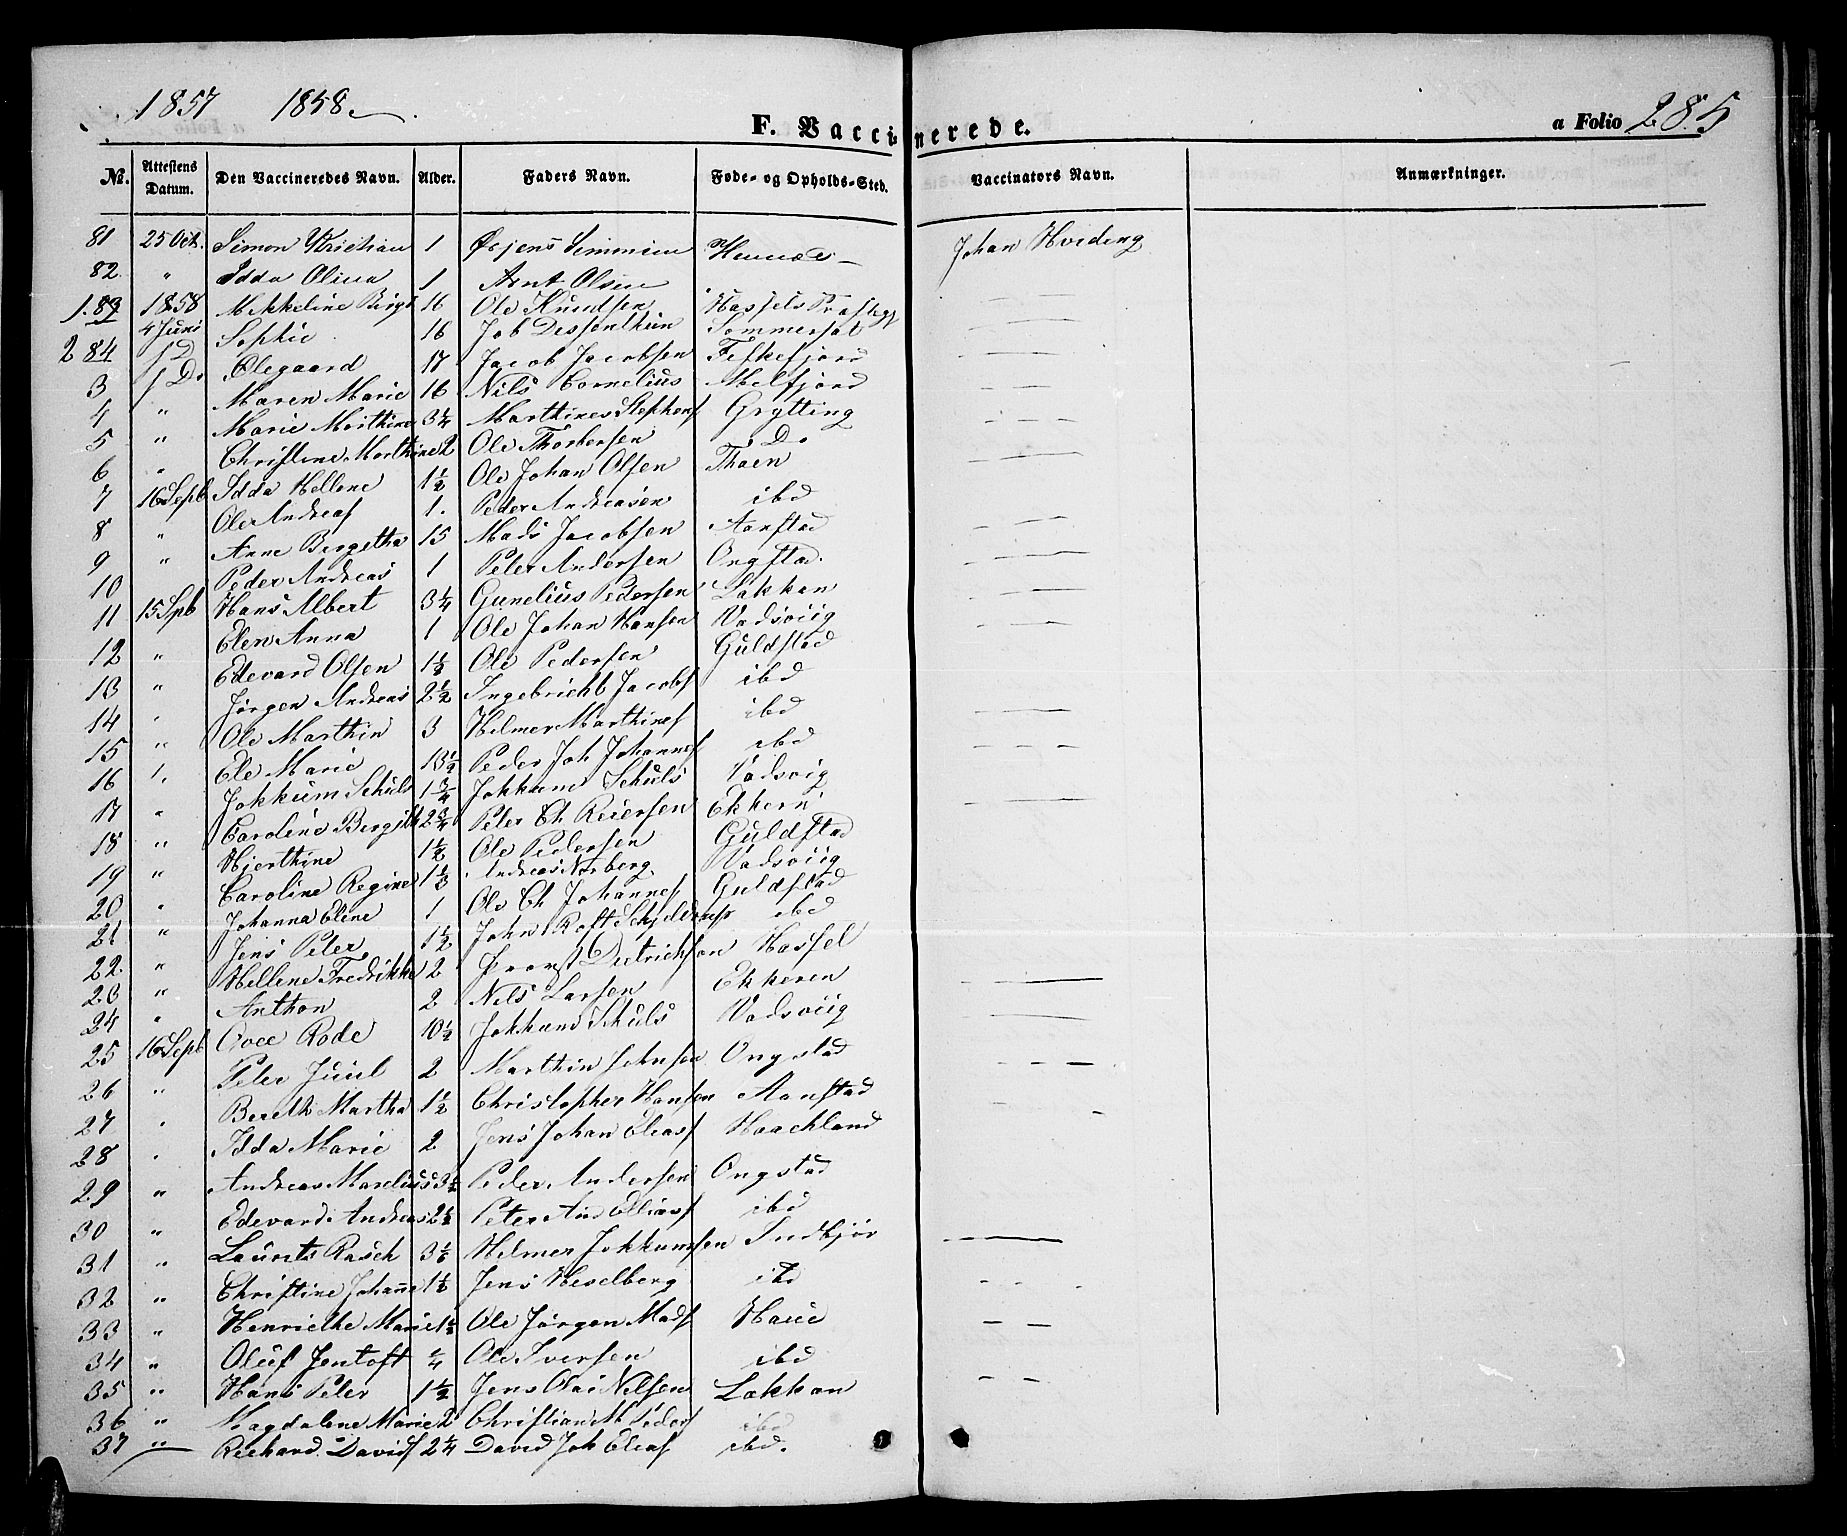 1857 1858
F. Vaccinerede. a Folio 285
No. Attestens Datum. Den Vaccineredes Navn. Alder. Faders Navn. Føde- og Opholds-Sted. Vaccinators Navn. Anmærkninger.
81 25 Oct. Simon 1 Johan Hveding
82 " Idda Olina 1 Arnt Olsen
1. 83 1858 Mekkeline Birgt 16 Ole Knudsen Hassels
4 Juni Sophie 16 Job Sommersæt
2 84 D. Olegaard 17 Jacob Jacobsen Fiskefjord
3 D. Maren Marie 16 Nils Cornelius Melfjord
4 " Marie Marthine 3/4 Marthines Stephens Grytting
5 " Christine Marthine 2 Ole Thorbersen D.
6 " Idda Hellene 1 1/2 Ole Johan Olsen Thoen
7 16 Sepb Ole Andreas 1. Peder Andreasen ibd
8 " Anne Bergetha 15 Mads Jacobsen Aanstad
9 " Peder Andreas 1 Peter Andersen Ongstad.
10 Hans Albert 3 1/4 Gunelius Pedersen Lakkan
11 15 Spb Elen Anna 1 Ole Johan Hansen Vadsviig
12 " Edevard Olsen 1 1/2 Ole Pedersen Guldstad
13 " Jørgen Andreas 2 1/2 Ingebricht Jacobs ibd
14 " Ole Marthin 3 Helmer Marthines ibd
15 " Ele Marie 13 1/2 Peder Joh Johannes ibd
16 " Jokkum Schuls 1 3/4 Jokkum Schuls Vadsvig
17 " Caroline Bergith 2 3/4 Peter Ch Reiersen Ekkern
18 " Hjerthine 1 1/2 Ole Pedersen Guldstad
19 " Caroline Regine 1 1/3 Andreas Norberg Vadsviig
20 " Johanna Eline 1 Ole Ch Johannes Guldstad
21 " Jens Peter 1 1/2 John Roft Schjelderup ibd
22 " Hellene Fredrikke 2 Provst Dietrichson Hassel
23 " Anthon 2 Nils Larsen Ekkeren
24 " Rode 10 1/2 Jokkum Schuls Vadsviig
25 16 Sepb Peter Juul 2 Marthin Johnsen Ongstad
26 " Bereth Martha 1 1/2 Christopher Hansen Aanstad
27 " Idda Marie 2 Jens Johan Elias Haachland
28 " Andreas Marelius 3 1/2 Peder Andersen Ongstad
29 " Edevard Andreas 2 1/2 Peter And Ellias ibd
30 " Launts Rasch 3 1/2 Helmer Jokkumsen Indkjør
31 " Christine Johane 1 1/2 Jens Heselberg ibd
32 " Henriethe Marie 1 1/2 Ole Jørgen Mads
33 " Oluf Jentoft 1/4 Ole Iversen ibd
34 " Hans Peter 1 1/2 Jens Olai Nilsen Lakkan
35 " Magdalene Marie 2 Christian M Peders ibd
36 " Reichard Davids 2 1/4 David Joh Elias ibd.
37 "